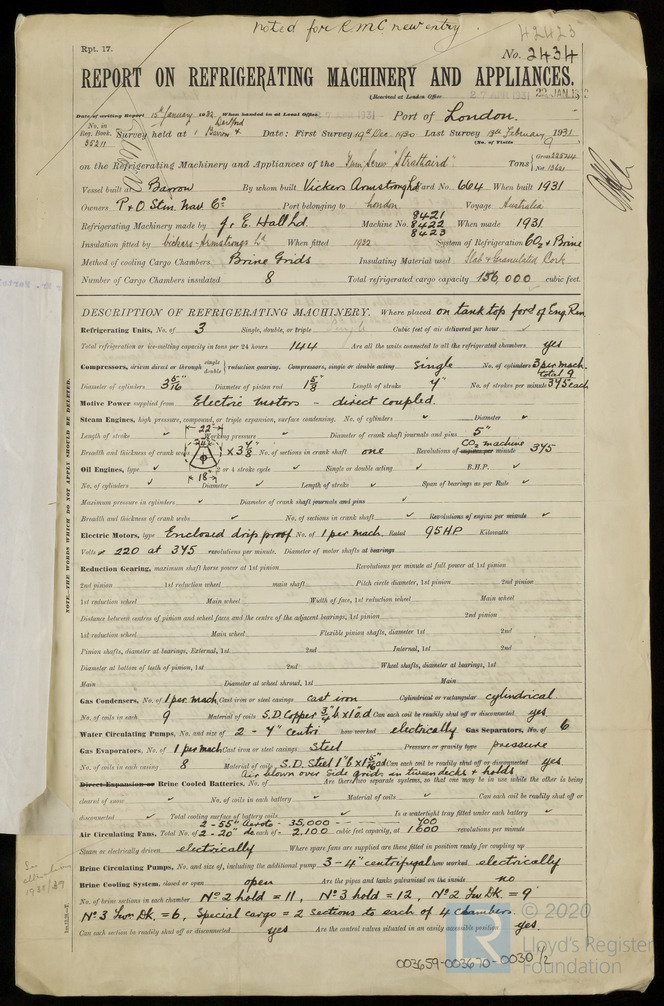 noted for RMC new entry
42423
Rpt. 17.
No. 2434
REPORT ON REFRIGERATING MACHINERY AND APPLIANCES.
(Received at London Office
Date of writing Report 15th January 1932 When handed in at Local Office 1931 Port of London.
No. in Reg. Book. 35211 Survey held at Barrow & Dartford Date: First Survey 19th Dec. 1930 Last Survey 13th February 1931
(No. of Visits 9)
on the Refrigerating Machinery and Appliances of the Twin Screw "Strathaird" Tons Gross 22544 Net 13621
Vessel built at Barrow By whom built Vickers Armstrong Ltd Yard No. 664 When built 1931
Owners P & O Stm. Nav. Co. Port belonging to London Voyage Australia
Refrigerating Machinery made by J & E. Hall Ltd Machine No. 8421 8422 8423 When made 1931
Insulation fitted by Vickers-Armstrongs Ld. When fitted 1932 System of Refrigeration CO2 & Brine
Method of cooling Cargo Chambers Brine Grids Insulating Material used Slab & Granulated Cork
Number of Cargo Chambers insulated 8 Total refrigerated cargo capacity 156,000 cubic feet.
DESCRIPTION OF REFRIGERATING MACHINERY. Where placed on tank top ford of Eng. Rm
Refrigerating Units, No. of 3 Single, double, or triple Cubic feet of air delivered per hour
Total refrigeration or ice-melting capacity in tons per 24 hours 144 Are all the units connected to all the refrigerated chambers yes
Compressors, driven direct or through single double reduction gearing. Compressors, single or double acting single No. of cylinders 3 per mach. total 9
Diameter of cylinders 3 5/16" Diameter of piston rod 1 5/8" Length of stroke 7" No. of strokes per minute 375 each
Motive Power supplied from Electric motors - direct coupled.
Steam Engines, high pressure, compound, or triple expansion, surface condensing. No. of cylinders Diameter
Length of stroke Working pressure Diameter of crank shaft journals and pins 5"
Breadth and thickness of crank webs 22" 18" x 3 1/8 No. of sections in crank shaft one Revolutions of engines per minute CO2 machine 375
Oil Engines, type 2 or 4 stroke cycle Single or double acting B.H.P.
No. of cylinders Diameter Length of stroke Span of bearings as per Rule
Maximum pressure in cylinders Diameter of crank shaft journals and pins
Breadth and thickness of crank webs No. of sections in crank shaft Revolutions of engine per minute
Electric Motors, type Enclosed drip proof No. of 1 per mach. Rated 95 HP Kilowatts
Volts 220 at 375 revolutions per minute. Diameter of motor shafts at bearings
Reduction Gearing, maximum shaft horse power at 1st pinion Revolutions per minute at full power at 1st pinion
2nd pinion 1st reduction wheel main shaft Pitch circle diameter, 1st pinion 2nd pinion
1st reduction wheel Main wheel Width of face, 1st reduction wheel Main wheel
Distance between centres of pinion and wheel faces and the centre of the adjacent bearings, 1st pinion 2nd pinion
1st reduction wheel Main wheel Flexible pinion shafts, diameter 1st 2nd
Pinion shafts, diameter at bearings, External, 1st 2nd Internal, 1st 2nd
Diameter at bottom of teeth of pinion, 1st 2nd Wheel shafts, diameter at bearings, 1st
Main Diameter at wheel shroud, 1st Main
Gas Condensers, No. of 1 per mach Cast iron or steel casings cast iron Cylindrical or rectangular cylindrical
No. of coils in each 9 Material of coils S.D. Copper Can each coil be readily shut off or disconnected yes
Water Circulating Pumps, No. and size of 2 - 7" centri how worked electrically Gas Separators, No. of 6
Gas Evaporators, No. of 1 per mach Cast iron or steel casings Steel Pressure or gravity type pressure
No. of coils in each casing 8 Material of coils S.D. Steel Can each coil be readily shut off or disconnected yes
Air blown over side grids in tween decks & holds
Direct Expansion or Brine Cooled Batteries, No. of Are there two separate systems, so that one may be in use while the other is being
cleared of snow No. of coils in each battery Material of coils Can each coil be readily shut off or
disconnected Total cooling surface of battery coils Is a watertight tray fitted under each battery
2 - 55" Aeroto - 35,000 - 700
Air Circulating Fans, Total No. of 2 - 20" de each of - 2,100 cubic feet capacity, at 1600 revolutions per minute
Steam or electrically driven electrically Where spare fans are supplied are these fitted in position ready for coupling up
Brine Circulating Pumps, No. and size of, including the additional pump 3 - 4" centrifugal how worked electrically
Brine Cooling System, closed or open open Are the pipes and tanks galvanised on the inside no
No. of brine sections in each chamber No 2 hold = 11, No 3 hold = 12, No 2 Lwr DK. = 9
No 3 Lwr. DK. = 6, Special cargo = 2 sections to each of 4 chambers.
Can each section be readily shut off or disconnected yes Are the control valves situated in an easily accessible position yes.
NOTE.—THE WORDS WHICH DO NOT APPLY SHOULD BE DELETED.
© 2020
LR
Lloyd's Register
Foundation
003659-003670-0030 1/2